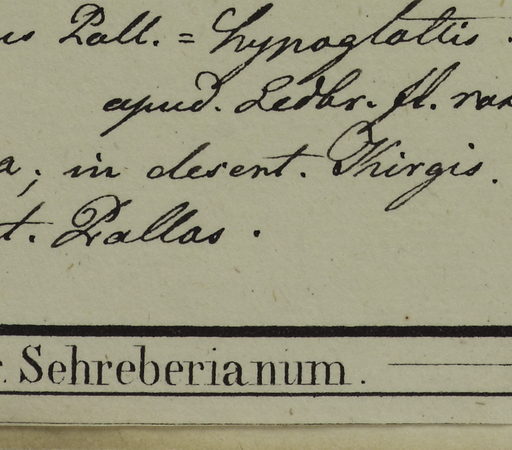 us Pall. = hypoglottis.
apud. Ledbr. fl. ros
a; in desert. Khirgis.
t. Pallas.
r. Sehreberianum.